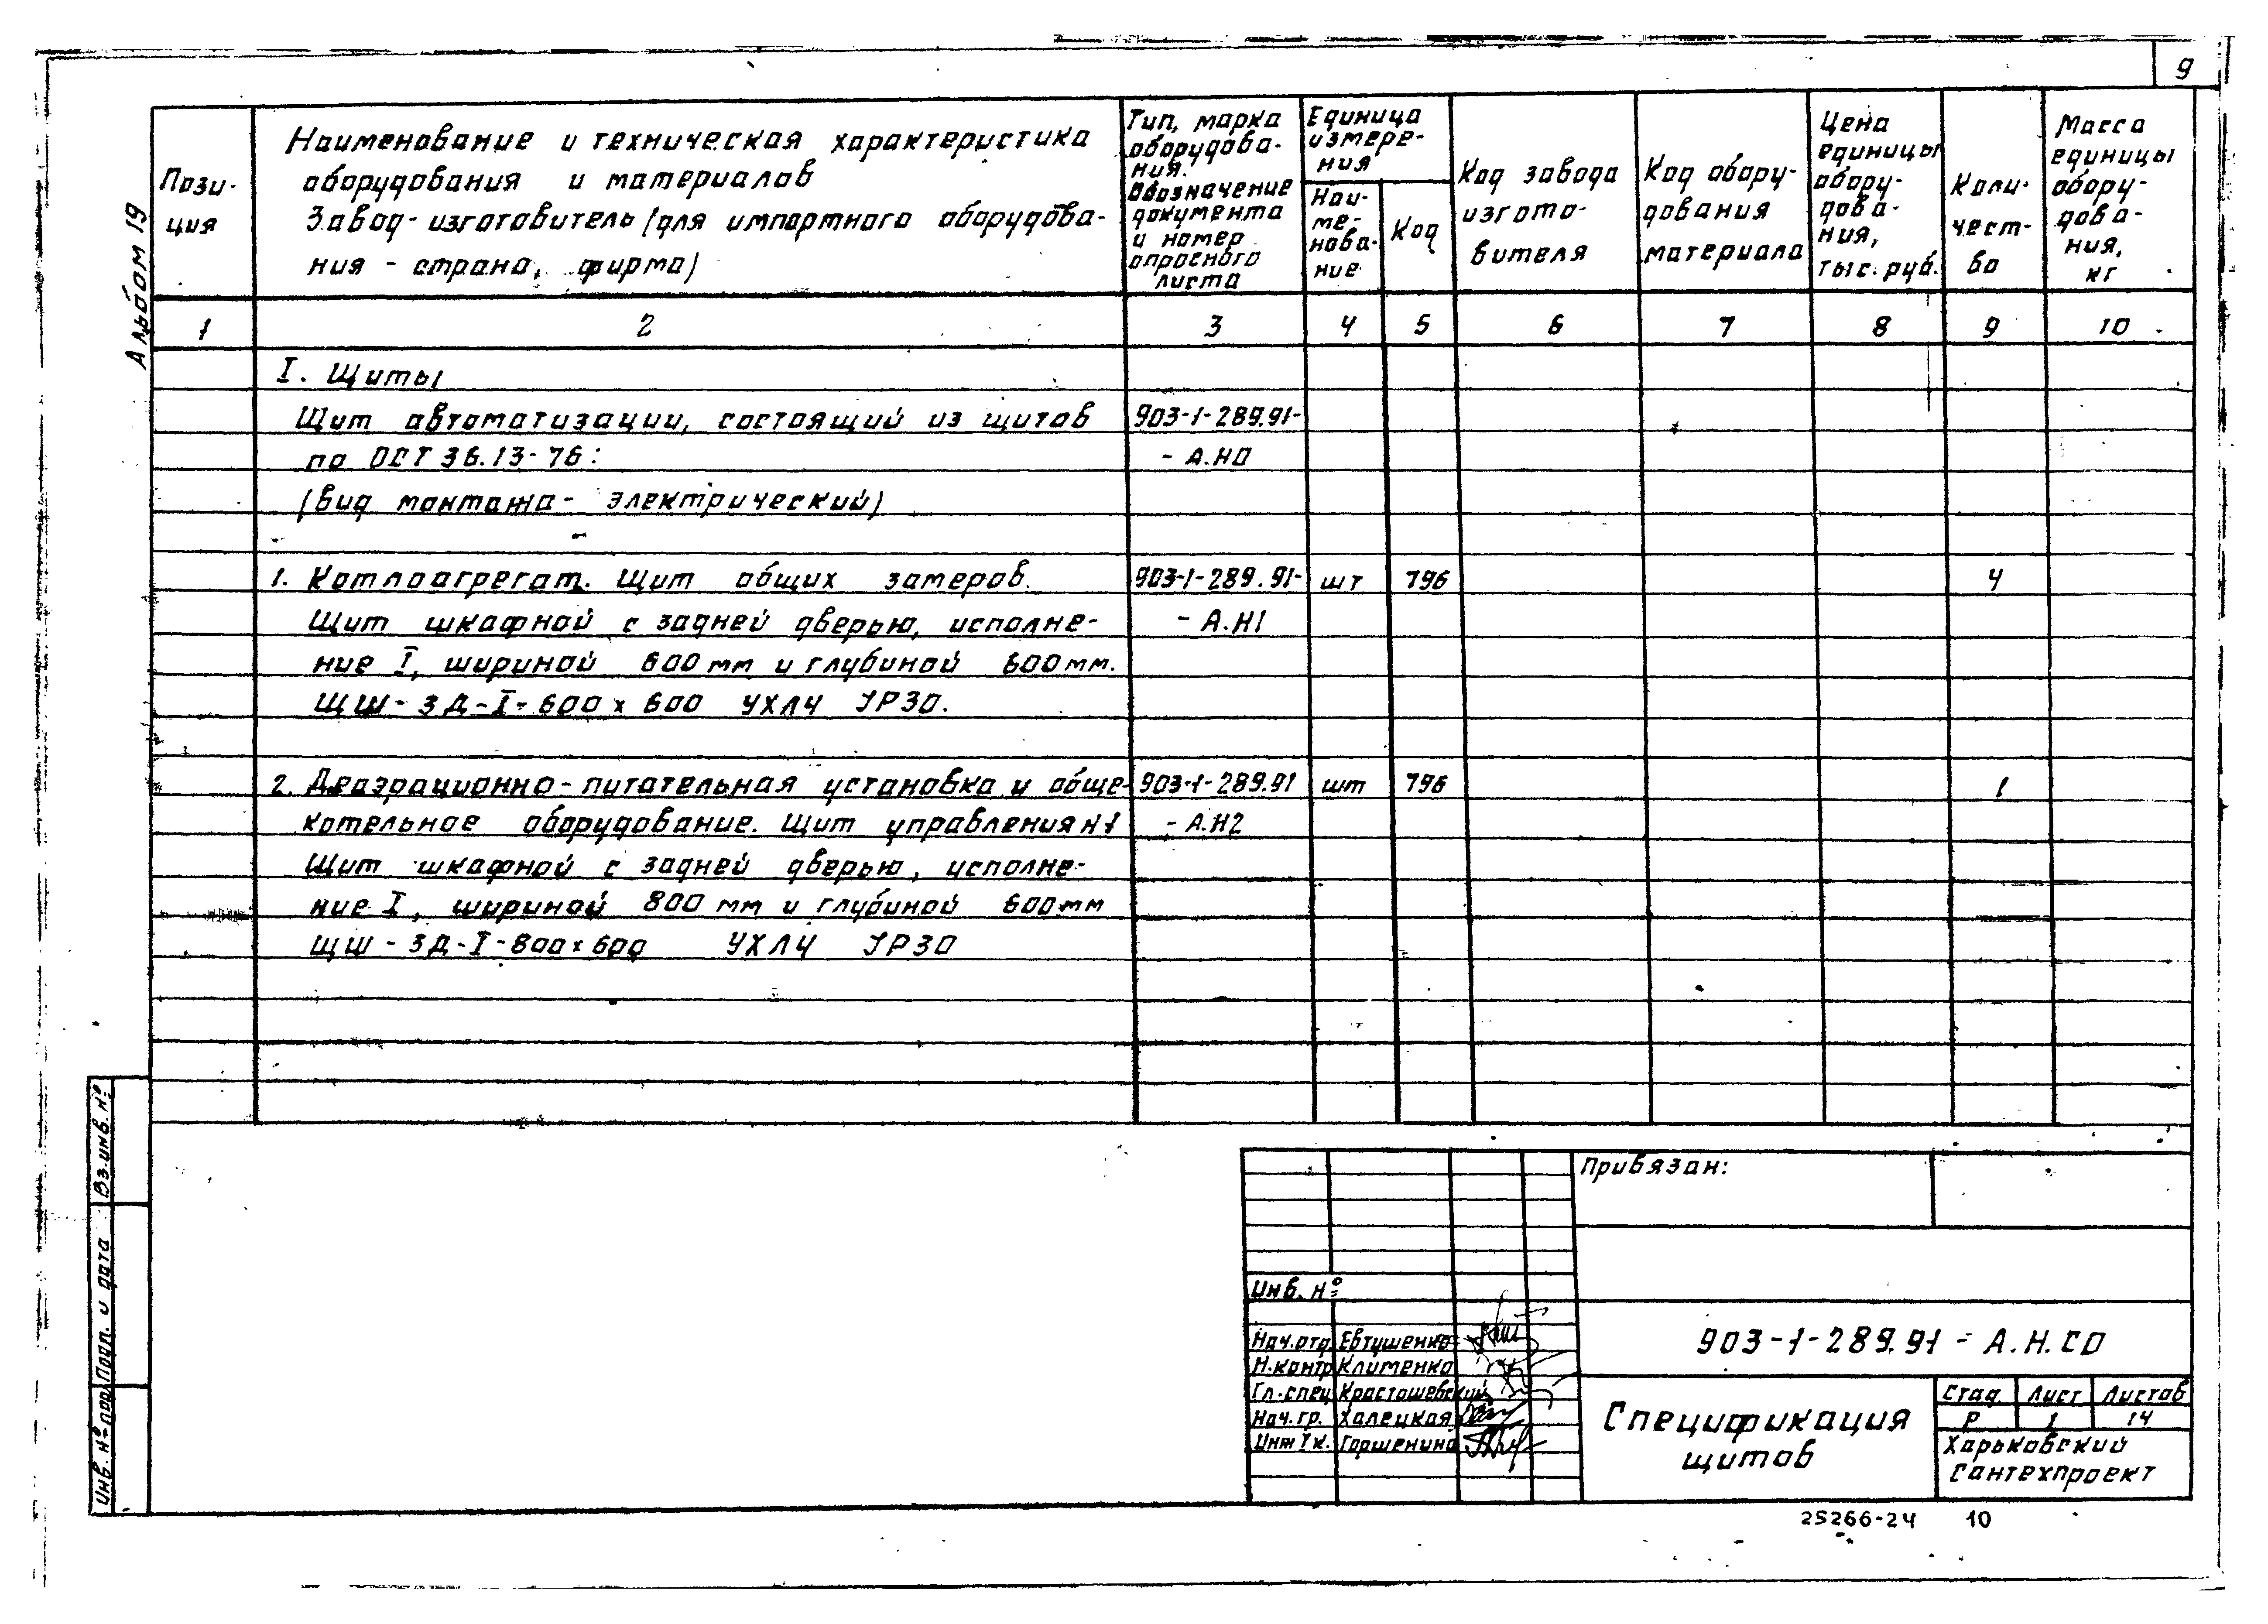 9
Альбом 19
Пози-
ция
Наименование и техническая характеристика
оборудования и материалов
Завод-изготовитель (для импортного оборудова-
ния - страна, фирма)
Тип, марка
оборудова-
ния.
Обозначение
документа
и номер
опросного
листа
Единица
измере-
ния
Наи-
ме-
нова-
ние
Код
Код завода
изгото-
вителя
Код обору-
дования
материала
Цена
единицы
обору-
дова-
ния,
тыс. руб.
Коли-
чест-
во
Масса
единицы
обору-
дова-
ния,
кг
1 2 3 4 5 6 7 8 9 10
I. Щиты
Щит автоматизации, состоящий из щитов 903-1-289.91-
по ОСТ 36.13-76: - А.НО
(вид монтажа - электрический)
1. Котлоагрегат. Щит общих замеров. 903-1-289.91- шт 796 4
Щит шкафной с задней дверью, исполне- - А.Н1
ние I, шириной 600 мм и глубиной 600 мм.
ЩШ-ЗД-I-600х600 УХЛ4 IP30.
2. Деаэрационно-питательная установка и обще- 903-1-289.91 шт 796 1
котельное оборудование. Щит управления №1 - А.Н2
Щит шкафной с задней дверью, исполне-
ние I, шириной 800 мм и глубиной 600 мм
ЩШ-ЗД-I-800х600 УХЛ4 IP30
Вз.инв. №
Подп. и дата
Инв. № под
Привязан:
Инв. №
Нач.отд. Евтушенко
Н.контр Клименко
Гл.спец Красташевский
Нач.гр. Халецкая
Инж Iк. Горшенина
903-1-289.91 - А.Н.СО
Спецификация
щитов
Стад. Лист Листов
Р 1 14
Харьковский
Сантехпроект
25266-24 10